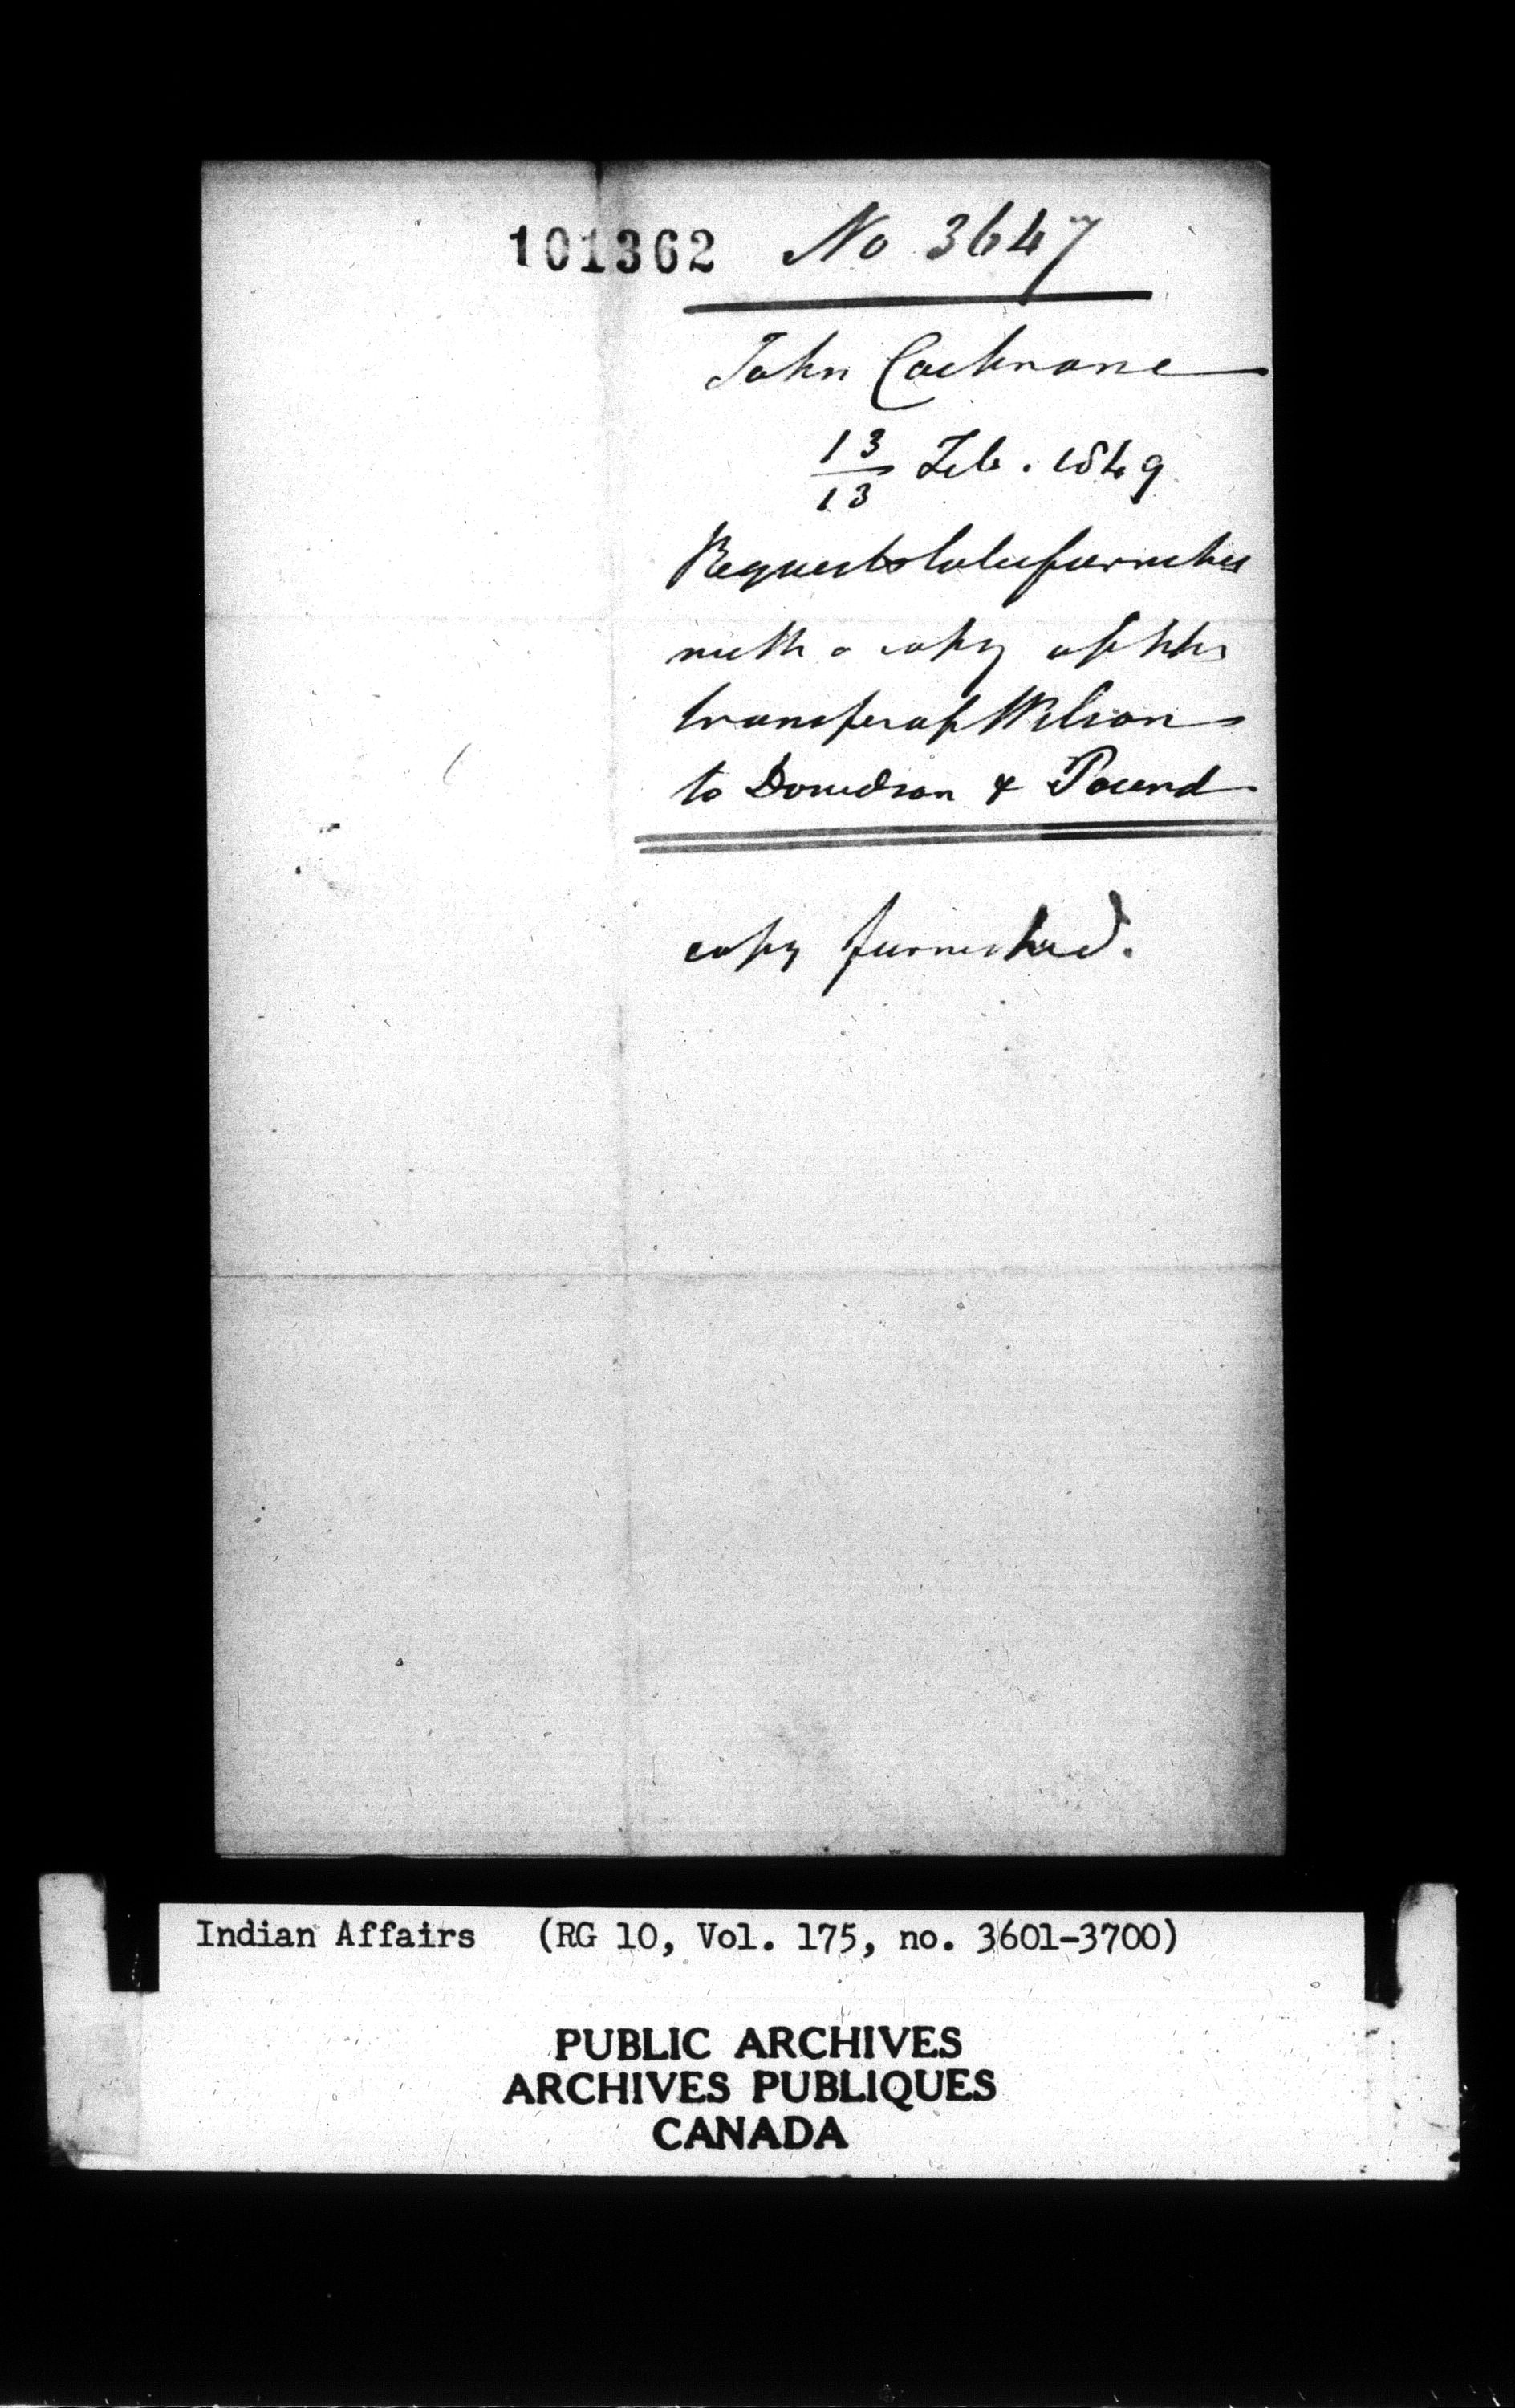 101362 No 3647
John Cochrane
13/13 Feb. 1849
Requests to be furnished
with a copy of the
transfer of Wilson
to & Pound
copy furnished.
Indian Affairs (RG 10, Vol. 175, no. 3601-3700)
PUBLIC ARCHIVES
ARCHIVES PUBLIQUES
CANADA